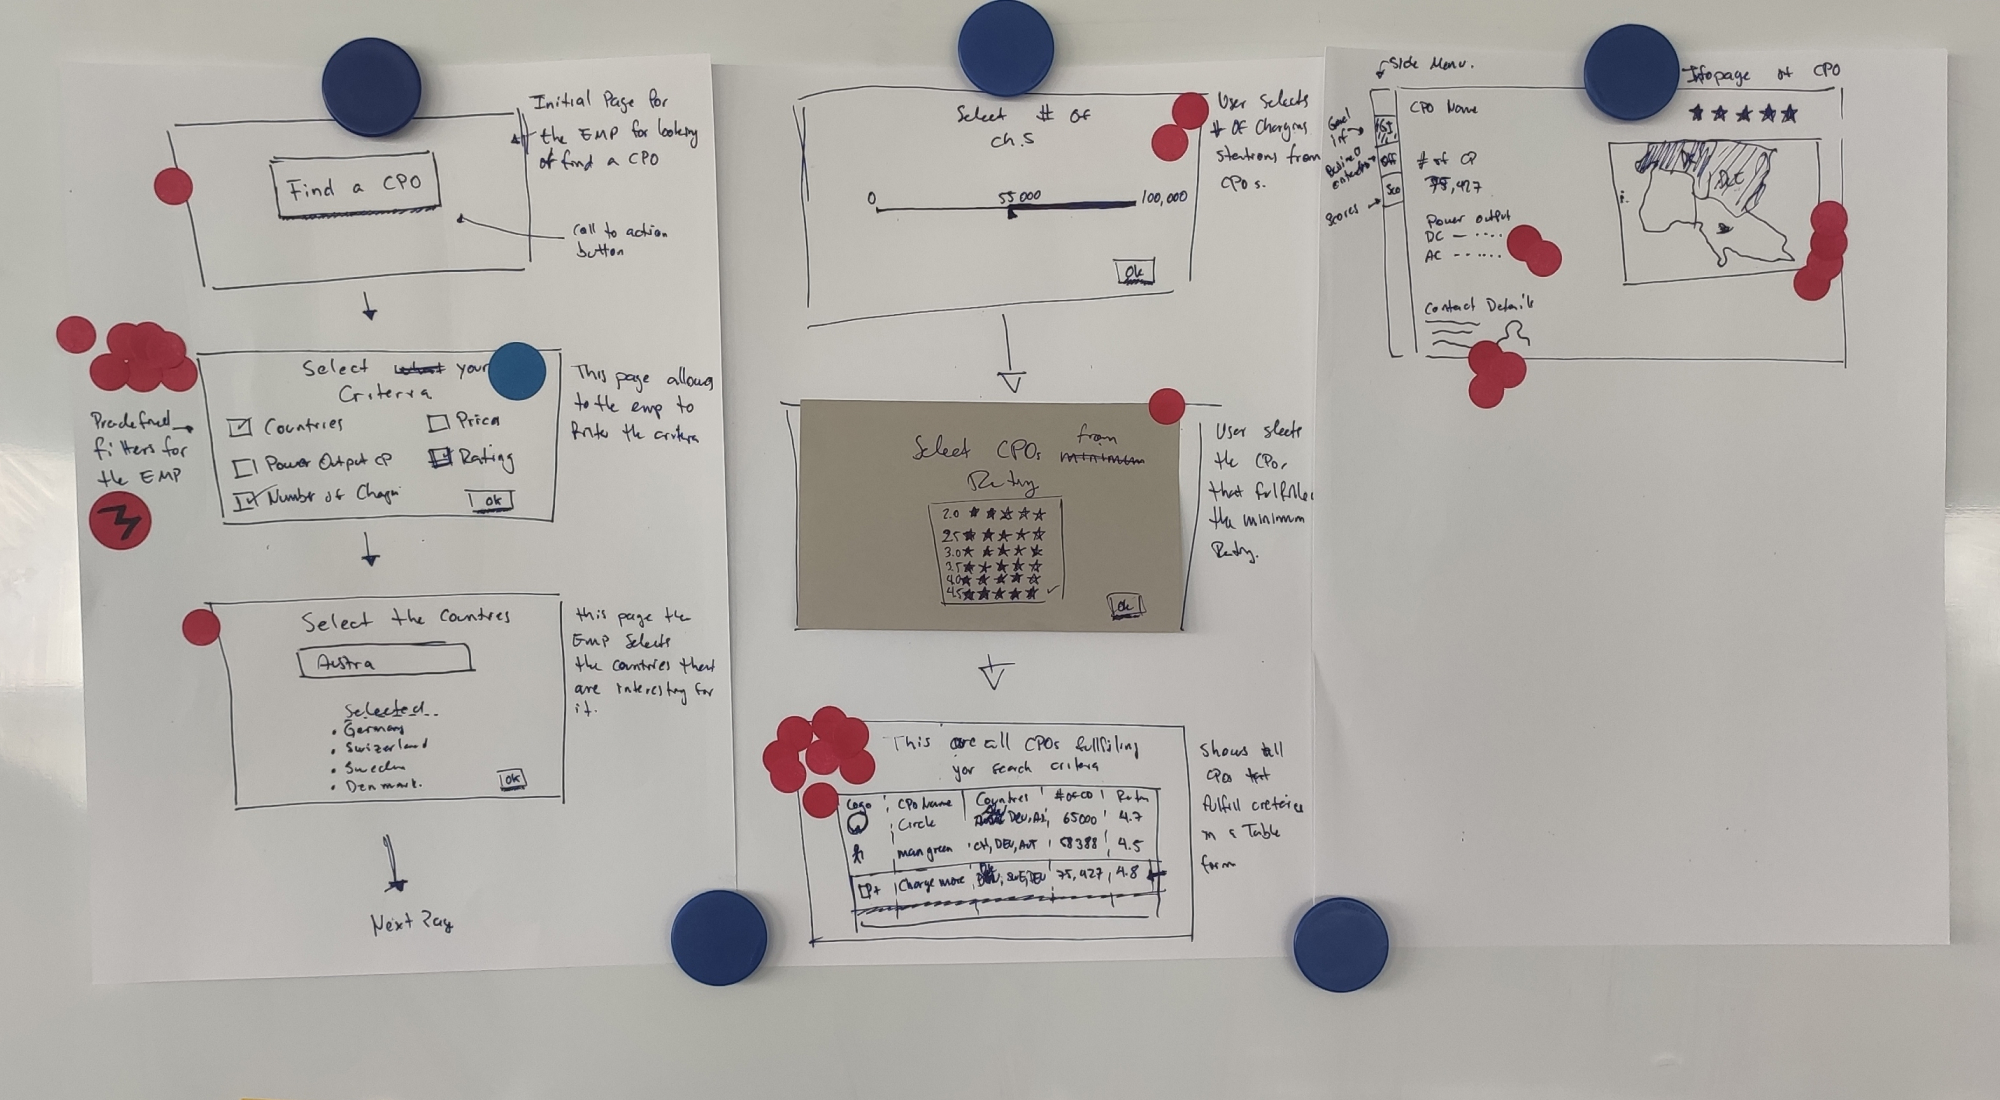 Initial Page for
the EMP for looking
of find a CPO
Find a CPO
Call to action
button
Select your
Criteria
Countries
Price
Power Output CP
Rating
Number of Chargi
Ok
Predefined
filters for
the EMP
3
This page allows
to the emp to
the criteria
Select the Countres
Austra
Selected
• Germany
• Swizerland
• Sweden
• Denmark.
OK
this page the
EMP Selects
the countries that
are interesting for
it.
Next Pag
Select # of
ch.s
0
55000
100,000
Ok
User selects
# of Charging
Stations from
CPOs.
Select CPOs from
Rating
2.0 ★★★★★
2.5 ★★★★★
3.0 ★★★★★
3.5 ★★★★★
4.0 ★★★★★
4.5 ★★★★★ ✓
Ok
User slects
the CPOs
that fulfills
the minimum
Rating.
This are all CPOs fullfiling
yor search critera
Logo CPO Name Countres Ratin
Circle 65000 4.7
man green CH, DEU, AUT 58388 4.5
Charge more SWE, DEU 75,427 4.8
Shows all
CPOs
fulfill creteria
in a Table
form
Side Menu.
Infopage of CPO
CPO Name
★★★★★
Genel
Inf
Scores
# of CP
75,427
Power output
DC
AC
Contact Details